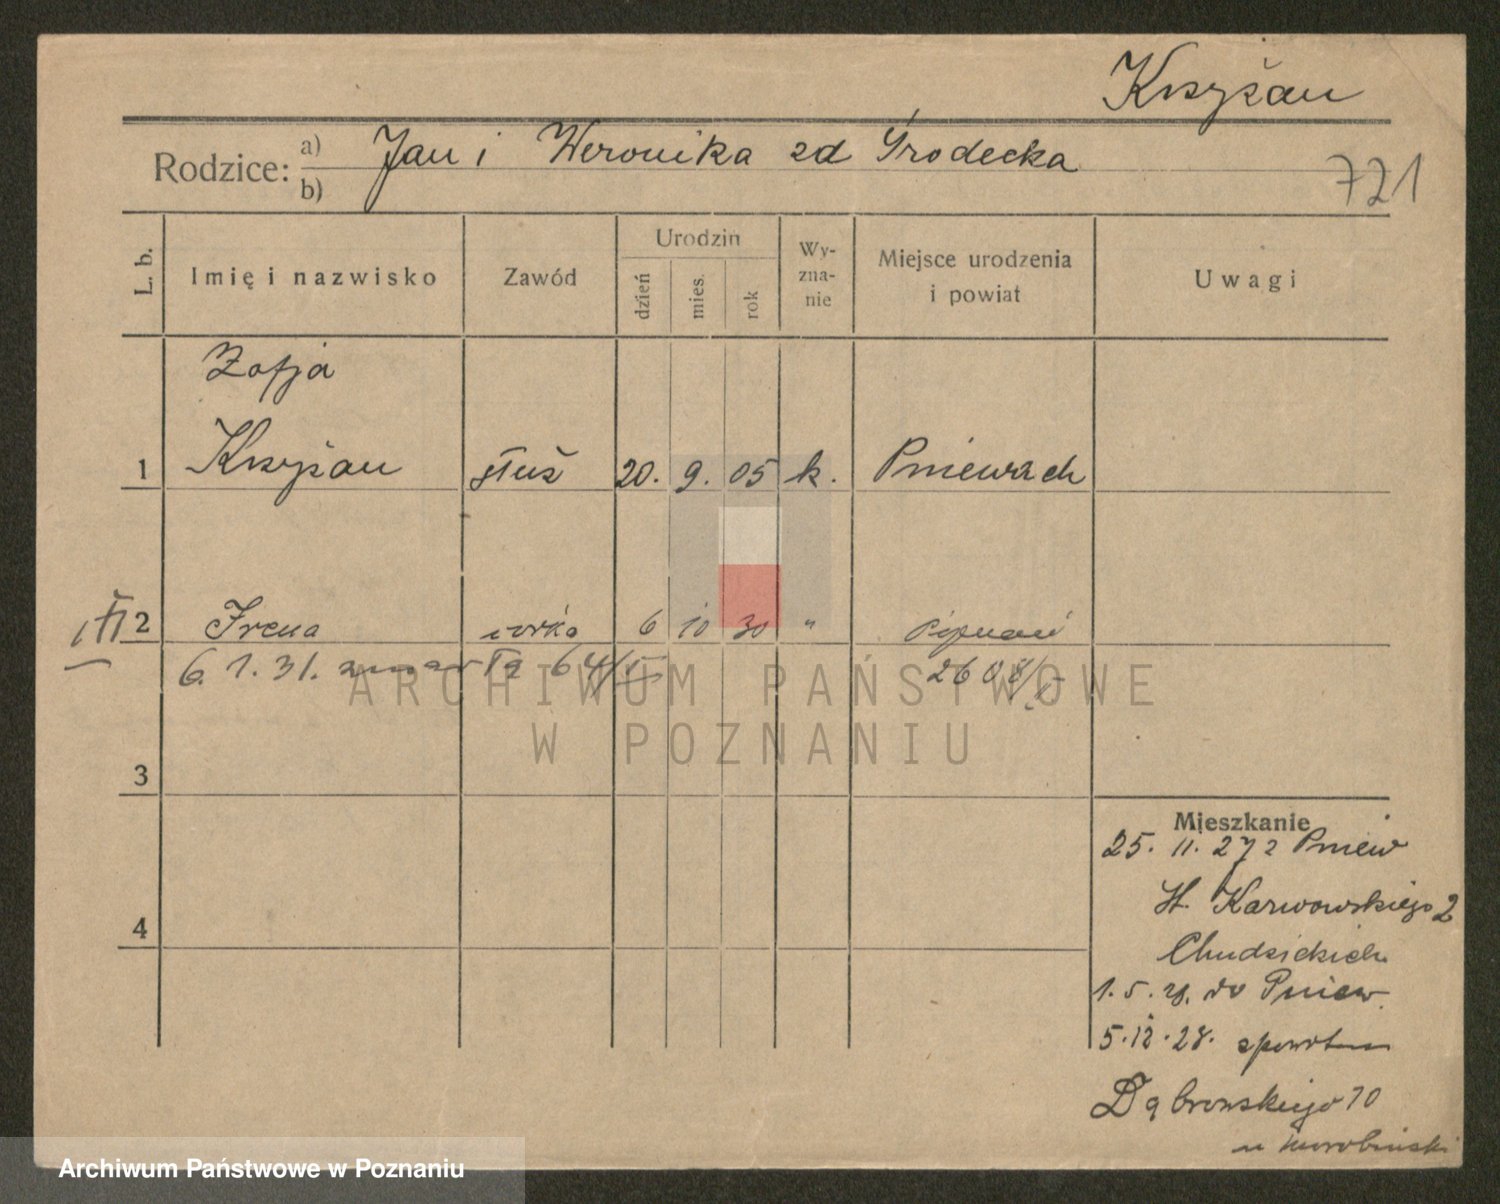 Krzyżan
Rodzice: a) Jan i Weronika zd Grodecka
b)
721
L. b.
Imię i nazwisko
Zawód
Urodzin
dzień
mies.
rok
Wy-
zna-
nie
Miejsce urodzenia
i powiat
Uwagi
Zofja
1 Krzyżan służ 20. 9. 05 k. Pniewach
2 Irena córka 6 10 30 " Poznań
6. 1. 31. zmarła 64/5 2608/
3
4
Mieszkanie
25. 11. 27 z Pniew
Karwowskiego 2
Chudzickich
1. 5. 28. do Pniew.
5. 12. 28. spowrotem
Dąbrowskiego 70
u
ARCHIWUM PAŃSTWOWE
W POZNANIU
Archiwum Państwowe w Poznaniu